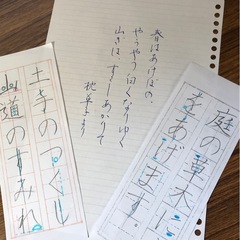 庭の草木に
をあげます。
春はあけぼの。
やうやう白くなりゆく
山ぎは、すこしあかりて
枕草子より
土手のつくし
山道のすみれ